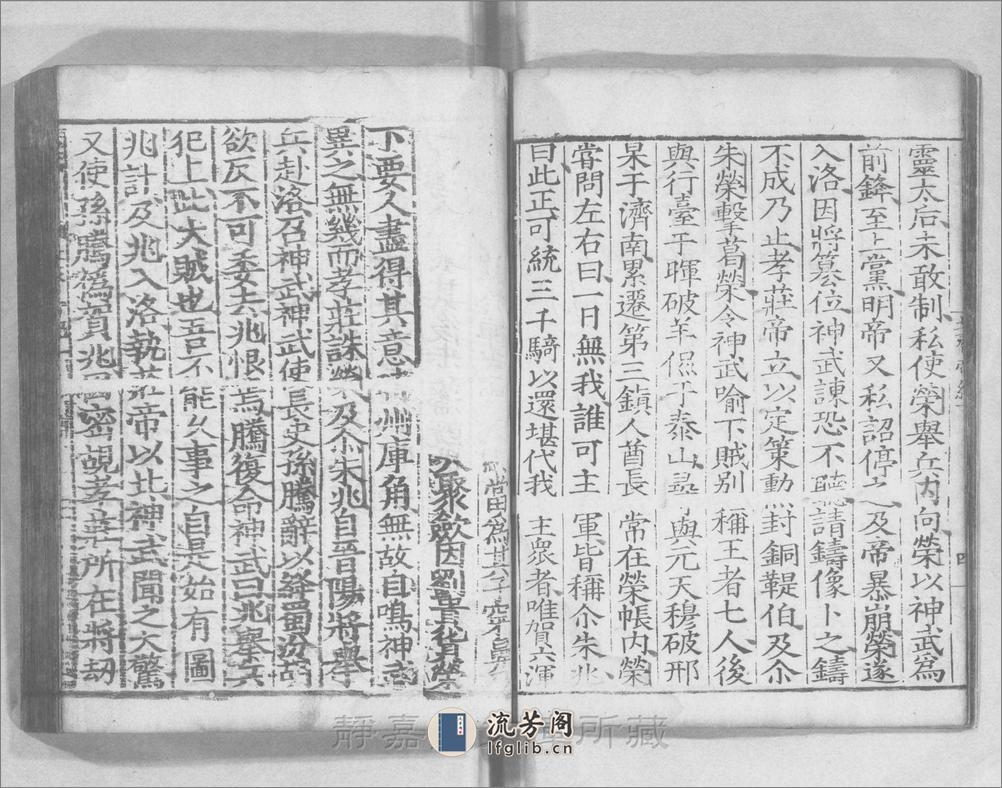 靈太后未敢制私使榮舉兵内向榮以神武爲
前鋒至上黨明帝又私詔停之及帝暴崩榮遂
入洛因將篡位神武諫恐不聽請鑄像卜之鑄
不成乃止孝莊帝立以定策勳封銅鞮伯及尒
朱榮擊葛榮令神武喻下賊别稱王者七人後
與行臺于暉破羊侃于泰山尋與元天穆破邢
杲于濟南累遷第三鎮人酋長常在榮帳内榮
嘗問左右曰一日無我誰可主軍皆稱尒朱兆
曰此正可統三千騎以還堪代我主衆者唯賀六渾
當爲其穿鼻
聚歛因劉貴貨榮
下要人盡得其意州庫角無故自鳴神武
異之無幾而孝莊誅榮及尒朱兆自晉陽將舉
兵赴洛召神武神武使長史孫騰辭以絳蜀汾胡
欲反不可委去兆恨焉騰復命神武曰兆舉兵
犯上此大賊也吾不能久事之自是始有圖
兆計及兆入洛執莊帝以北神武聞之大驚
又使孫騰爲賀兆因密覘孝莊所在將劫
靜嘉堂文庫所藏
流芳阁
lfglib.cn